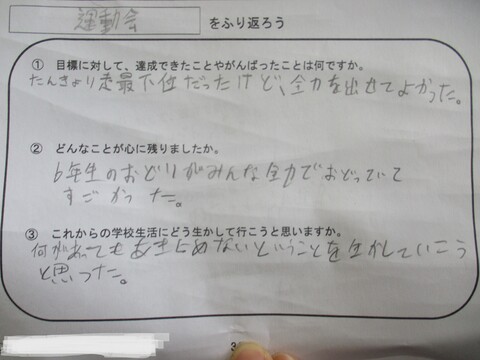 運動会 をふり返ろう
① 目標に対して、達成できたことやがんばったことは何ですか。
たんきょり走最下位だったけど、全力を出せてよかった。
② どんなことが心に残りましたか。
6年生のおどりがみんな全力でおどっていて
すごかった。
③ これからの学校生活にどう生かして行こうと思いますか。
何があってもあきらめないということを生かしていこう
と思った。
3